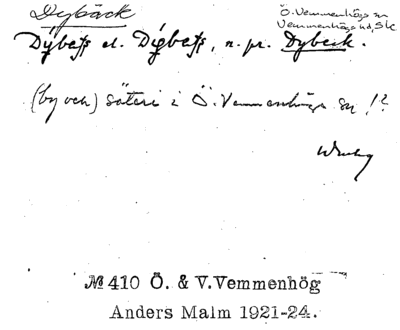 Dybäck
Ö. Vemmenhögs sn
Vemmenhögs hd, Sk
el. n. pr. Dybeck.
(by och) säteri i Ö. Vemmenhögs sn !?
№ 410 Ö. & V. Vemmenhög
Anders Malm 1921-24.